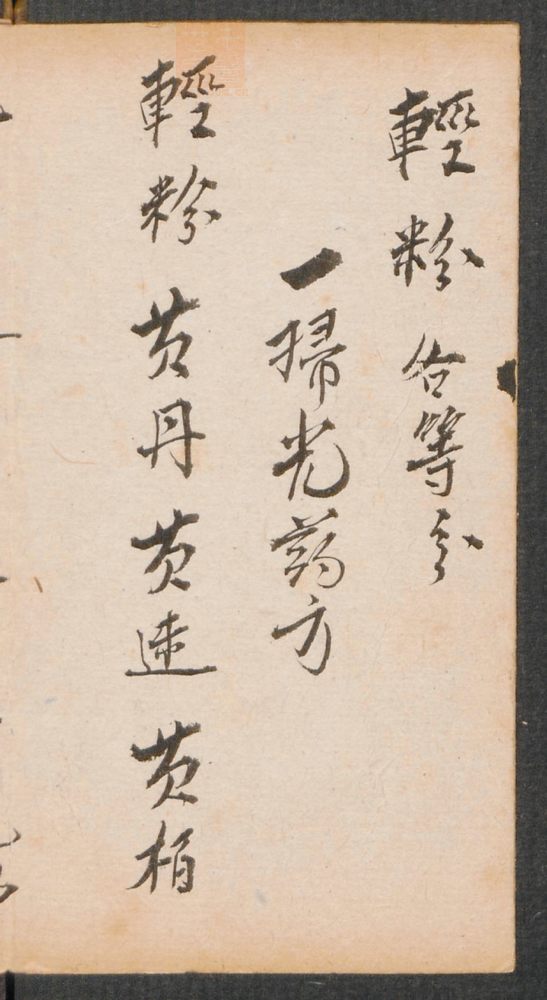 輕粉 各等分
一掃光药方
輕粉 黄丹 黄連 黄柏